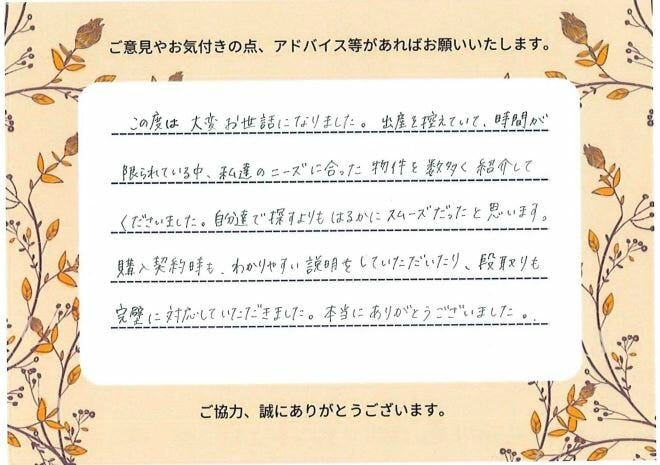 ご意見やお気付きの点、アドバイス等があればお願いいたします。
この度は大変お世話になりました。出産を控えていて、時間が
限られている中、私達のニーズに合った物件を数多く紹介して
くださいました。自分達で探すよりもはるかにスムーズだったと思います。
購入契約時も、わかりやすい説明をしていただいたり、段取りも
完璧に対応していただきました。本当にありがとうございました。
ご協力、誠にありがとうございます。